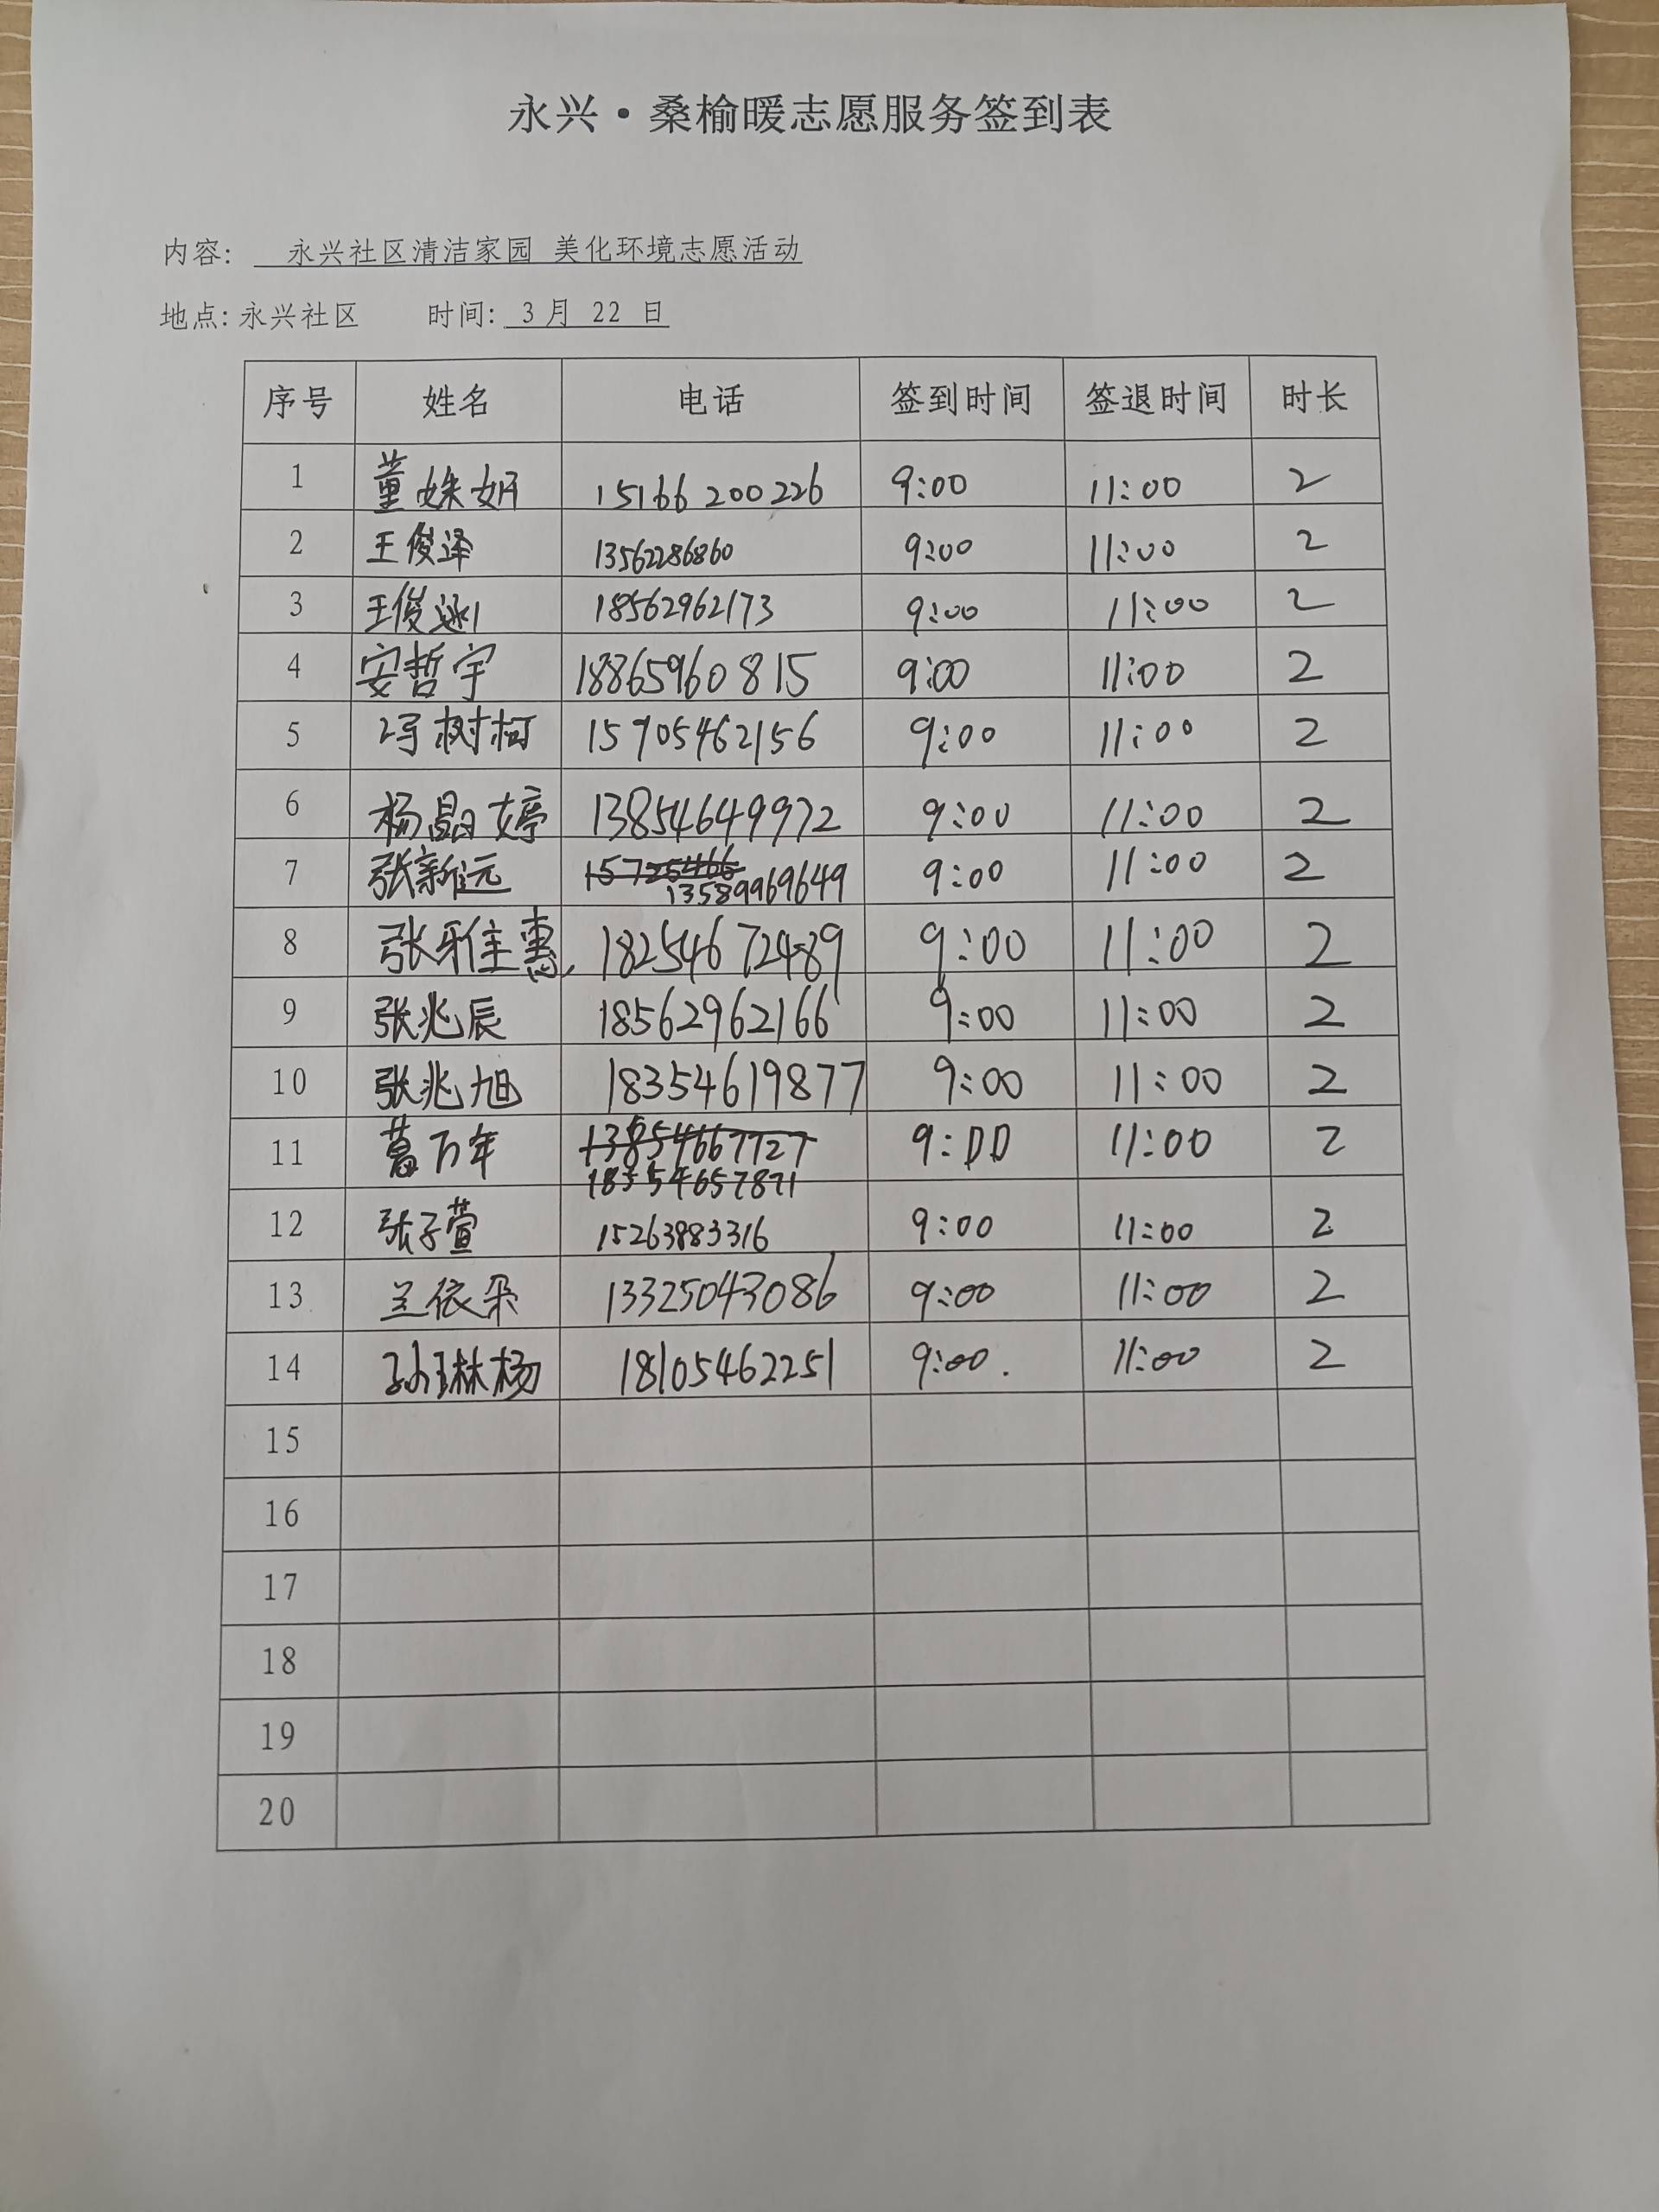 永兴·桑榆暖志愿服务签到表
内容: 永兴社区清洁家园 美化环境志愿活动
地点: 永兴社区 时间: 3月 22 日
序号 姓名 电话 签到时间 签退时间 时长
1 董姝妍 15166200226 9:00 11:00 2
2 王俊泽 13562286860 9:00 11:00 2
3 王俊 18562962173 9:00 11:00 2
4 安哲宇 18865960815 9:00 11:00 2
5 冯树柯 15905462156 9:00 11:00 2
6 杨晶婷 13854649972 9:00 11:00 2
7 张新元 15725466 13589969649 9:00 11:00 2
8 张雅惠 18254672489 9:00 11:00 2
9 张兆辰 18562962166 9:00 11:00 2
10 张兆旭 18354619877 9:00 11:00 2
11 万年 13854667727 9:00 11:00 2
18354657871
12 张子萱 15263883316 9:00 11:00 2
13 兰依朵 13325043086 9:00 11:00 2
14 孙琳杨 18105462251 9:00. 11:00 2
15
16
17
18
19
20